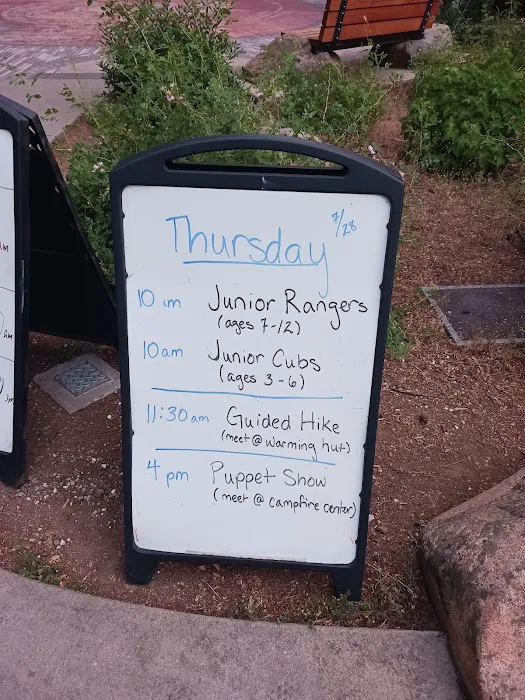 Thursday 7/28
10 am Junior Rangers
(ages 7-12)
10am Junior Cubs
(ages 3-6)
11:30am Guided Hike
(meet @ warming hut)
4 pm Puppet Show
(meet @ campfire center)